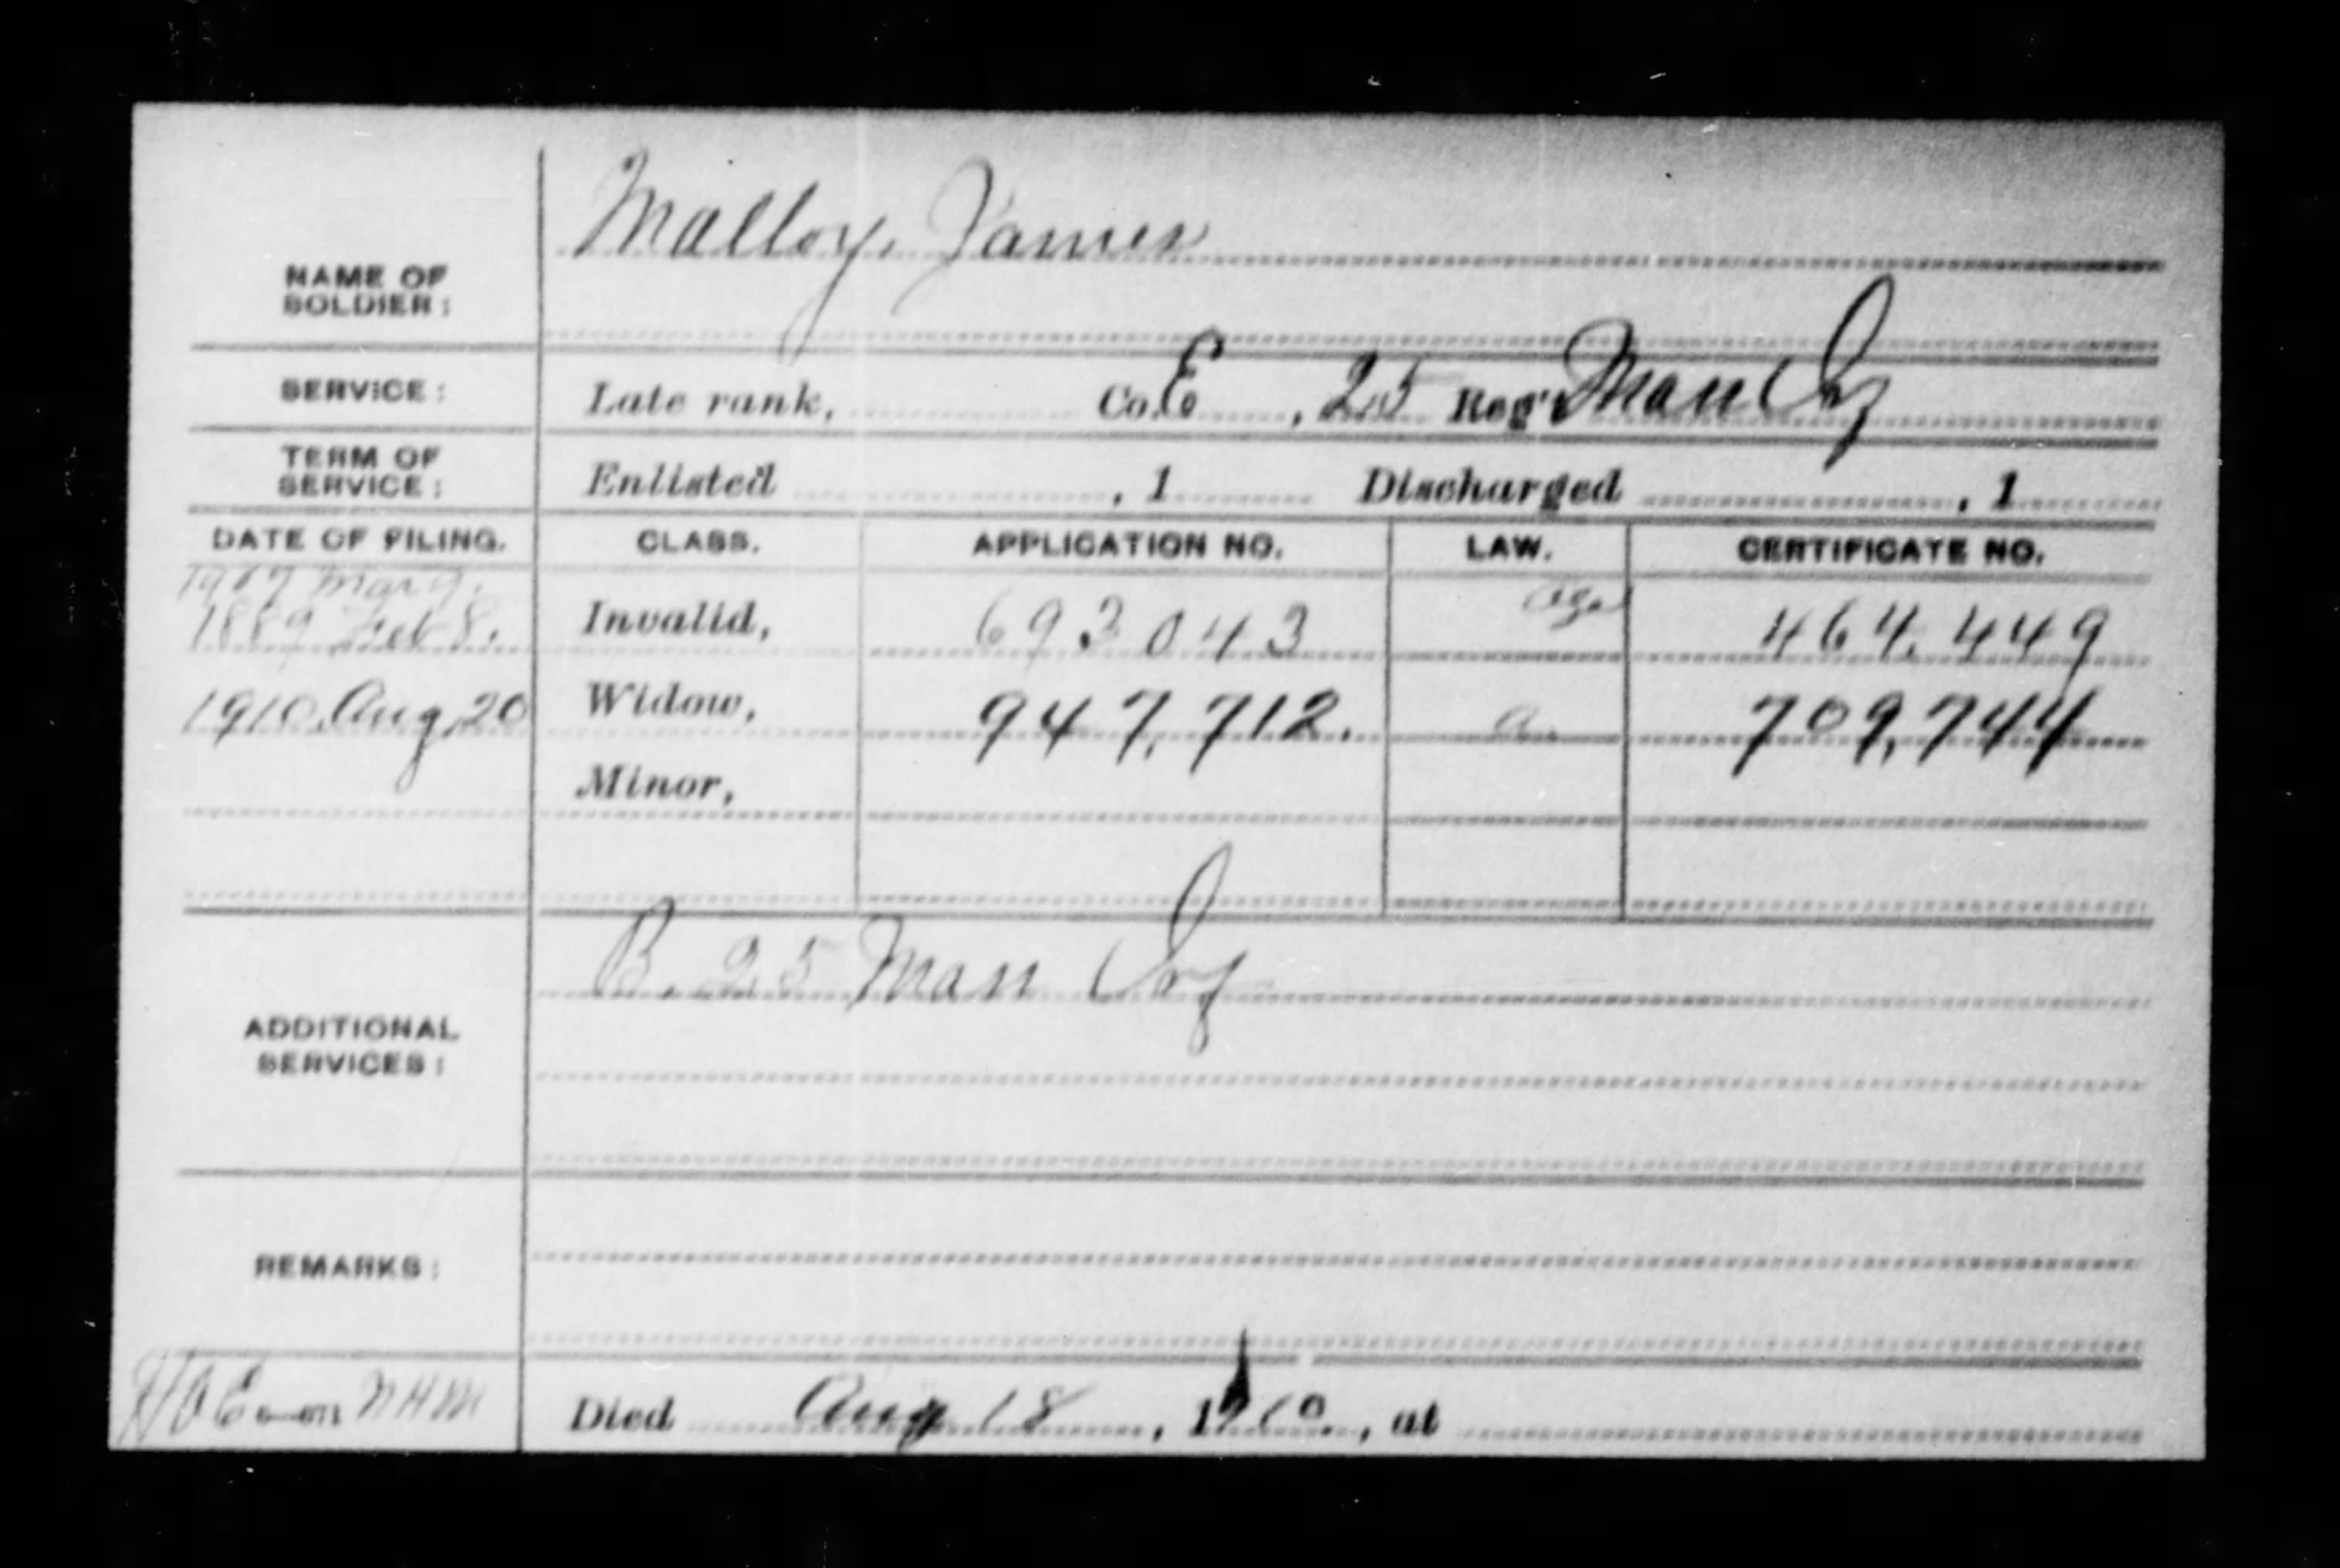 Malloy, James
NAME OF
SOLDIER:
SERVICE: Late rank, Co. E, 25 Reg't Mass Inf
TERM OF
SERVICE: Enlisted , 1 Discharged , 1
DATE OF FILING. CLASS. APPLICATION NO. LAW. CERTIFICATE NO.
1907 Mar 9. age
1889 Feb 8. Invalid, 693043 464,449
1910 Aug 20 Widow, 947,712. a 709,744
Minor,
B. 25 Mass Inf
ADDITIONAL
SERVICES:
REMARKS:
NHM Died Aug 18, 1910, at